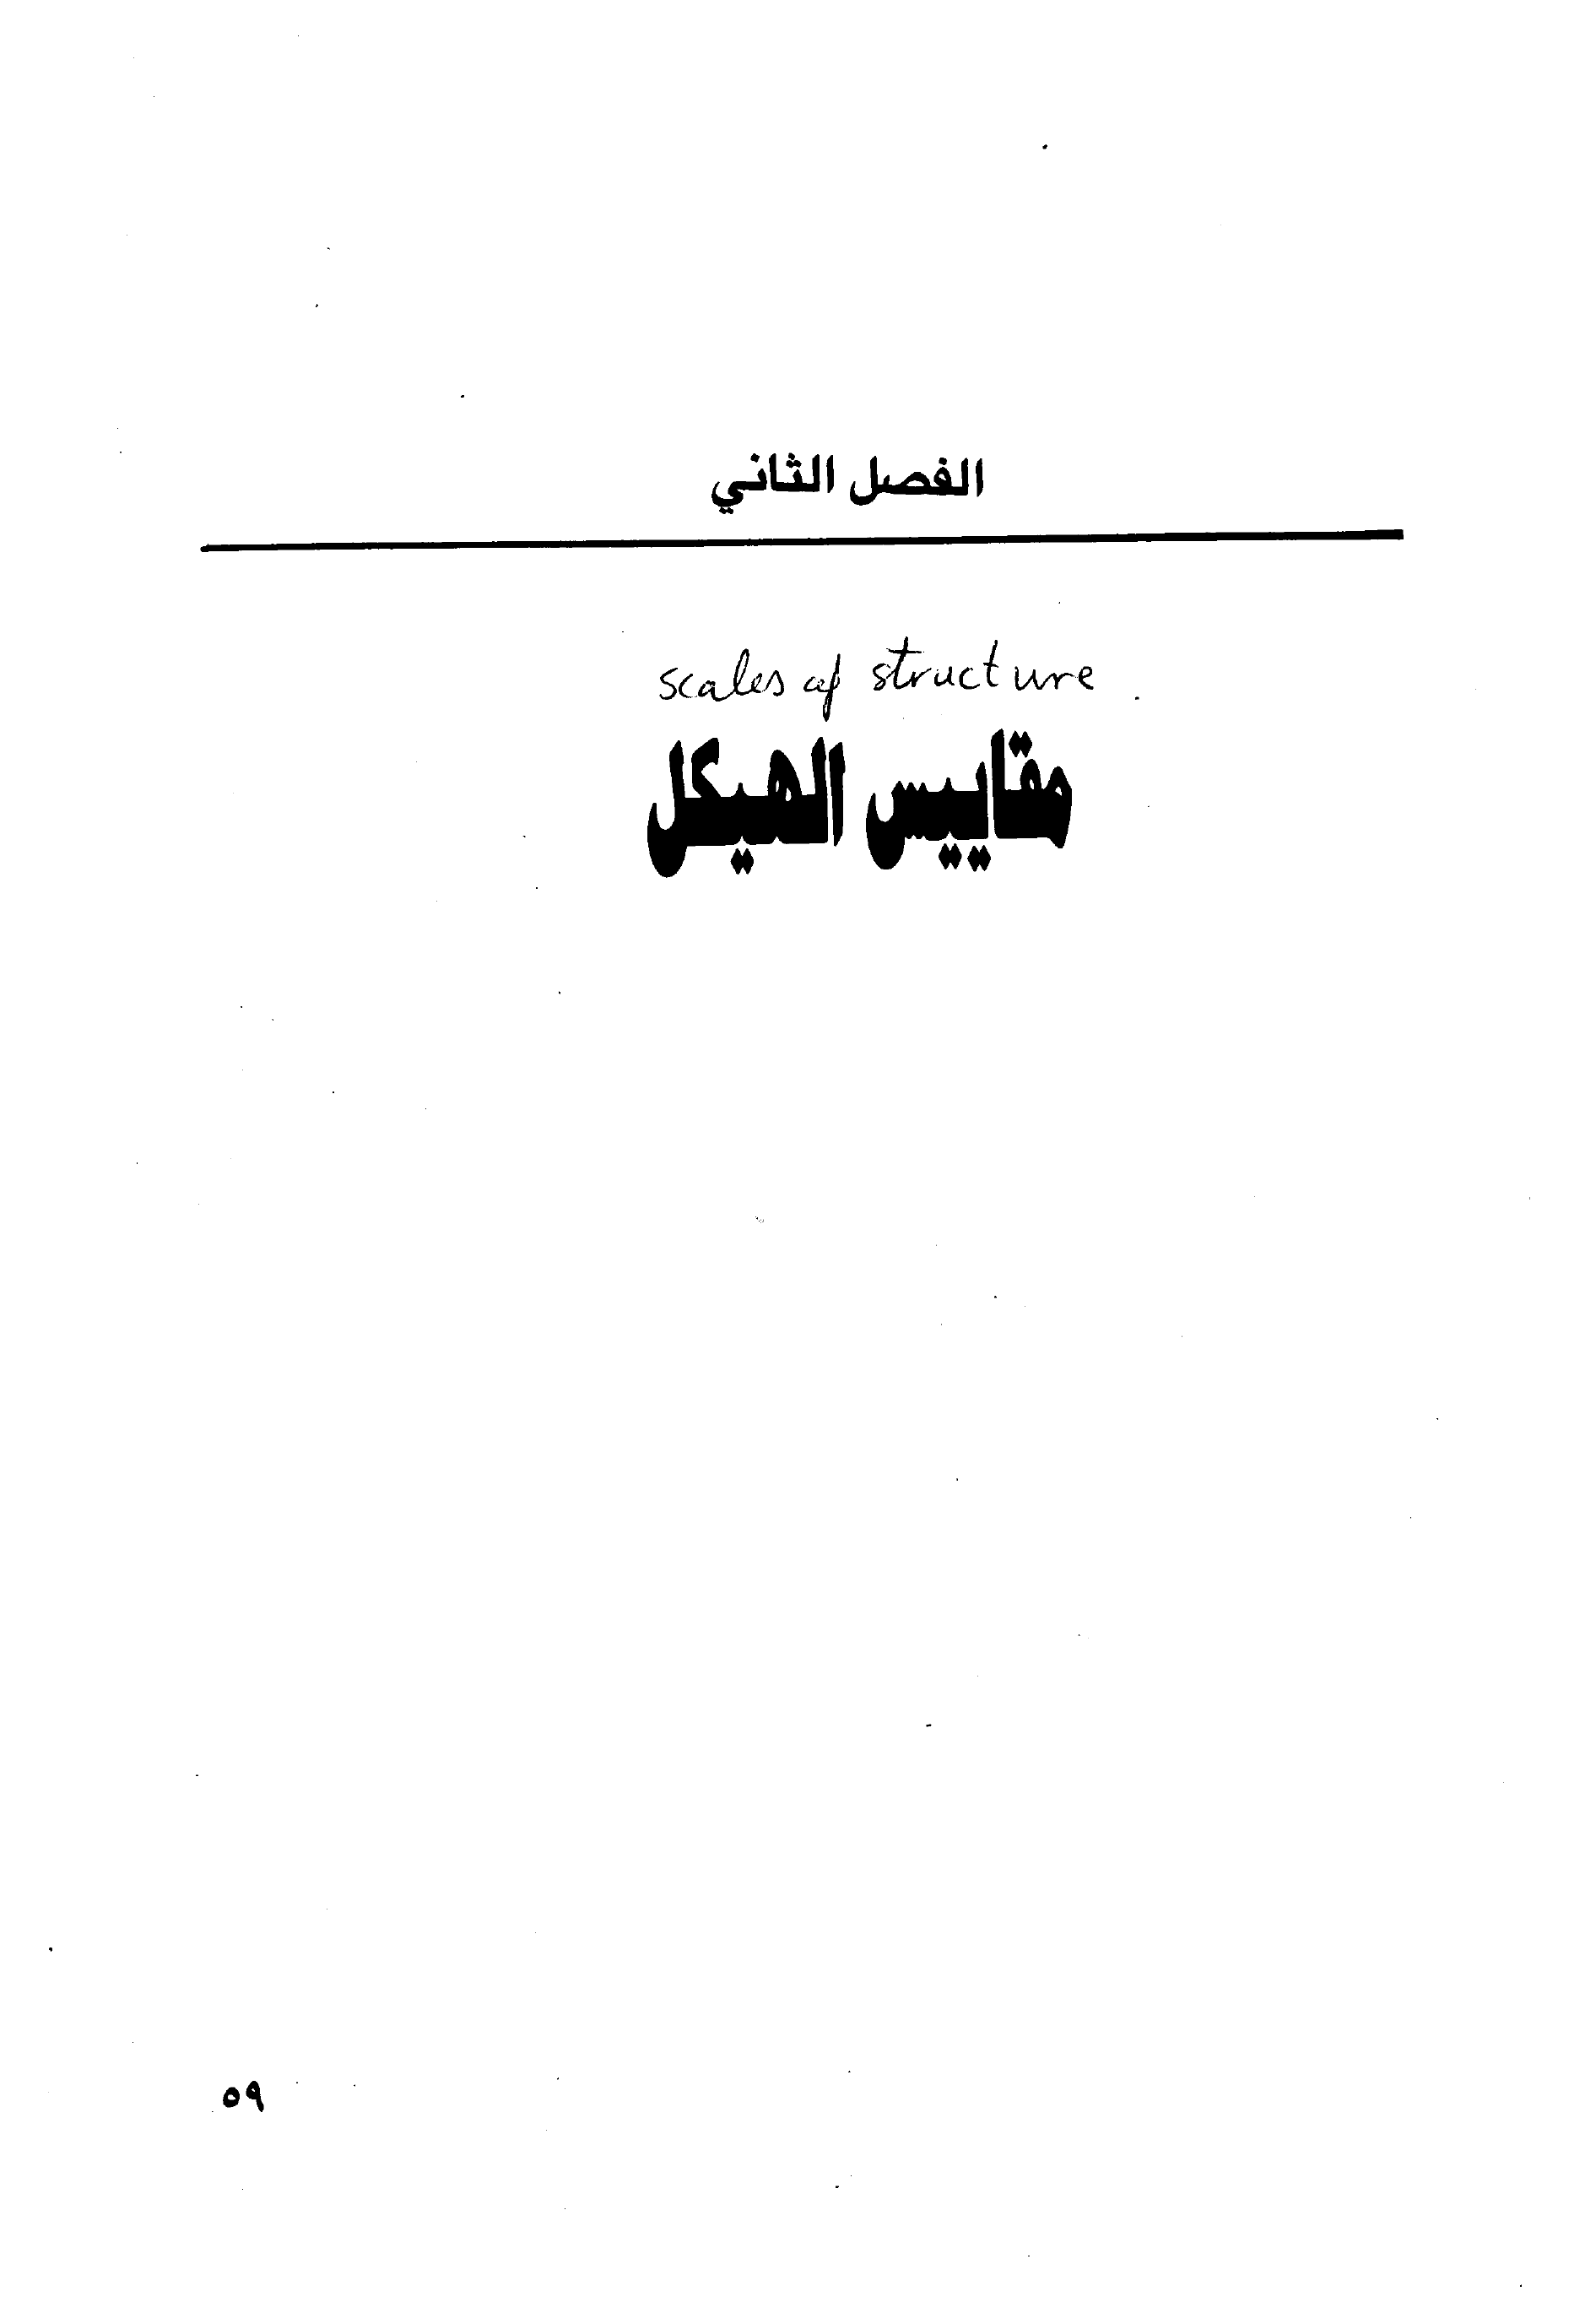 الفصل الثاني
scales of structure
مقاييس الهيكل
٥٩